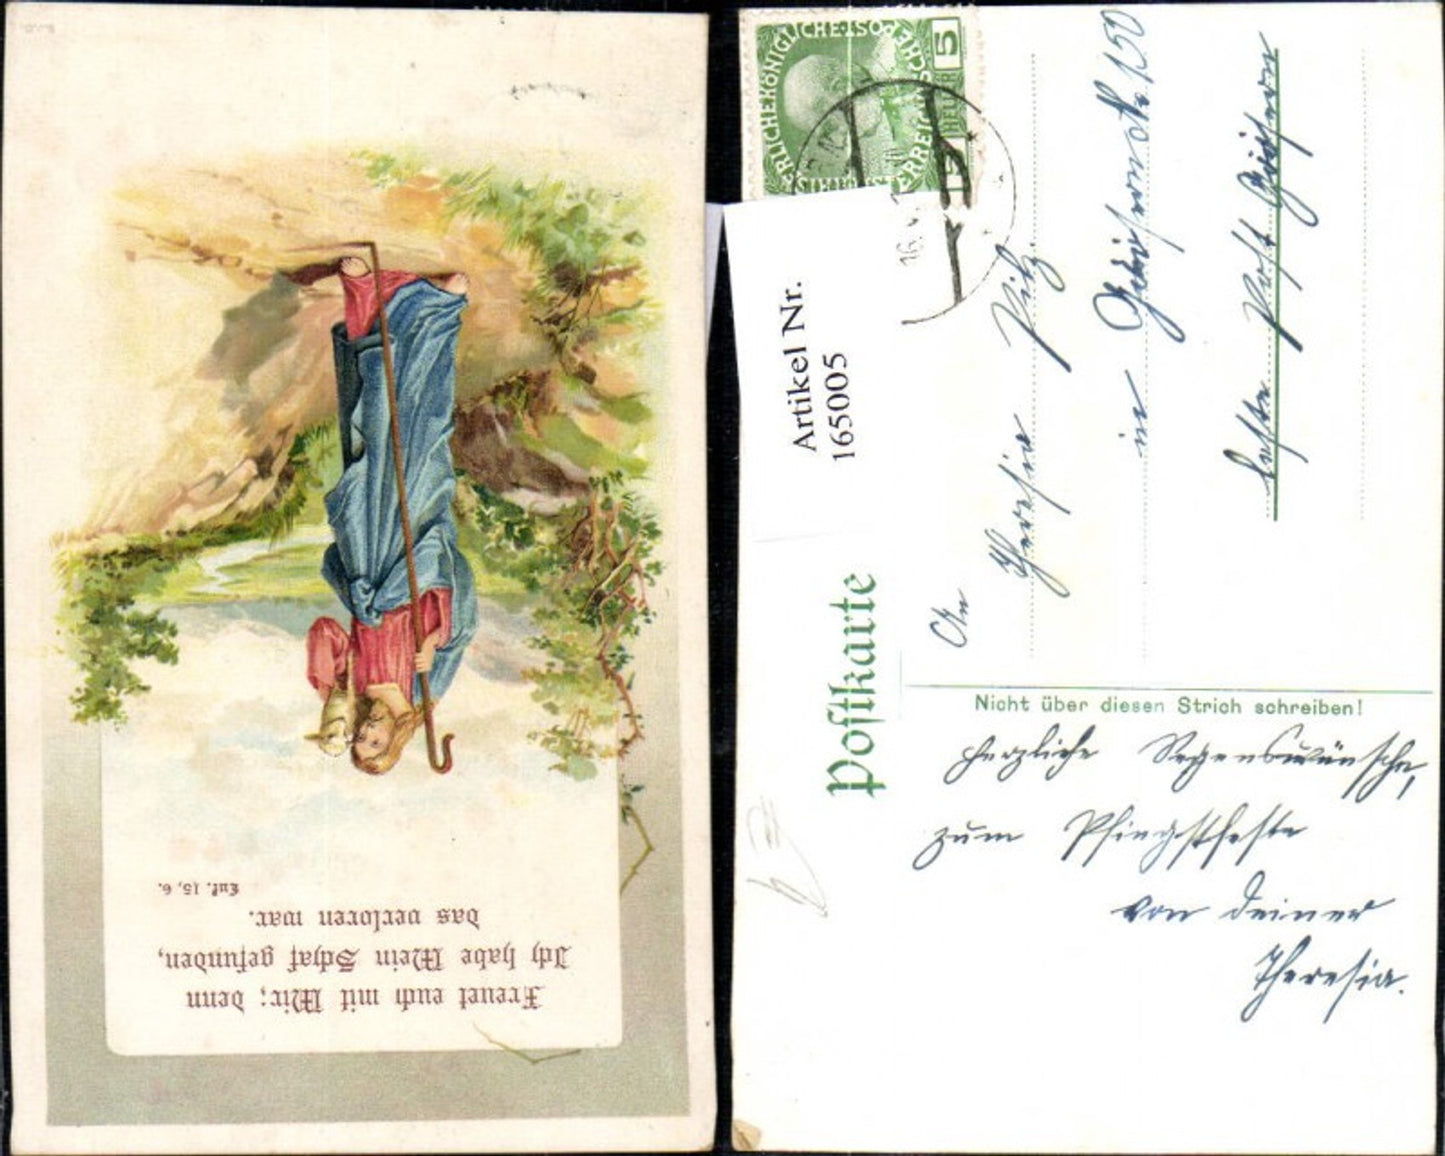 Freuet euch mit Mir; denn
Ich habe Mein Schaf gefunden,
das verloren war.
Luk. 15, 6.
5
HELLER
Artikel Nr.
165005
Postkarte
An
Theresia
in
No 150
letzte Post
Nicht über diesen Strich schreiben!
Herzliche Segenswünsche,
zum Pfingstfeste
von Deiner
Theresia.